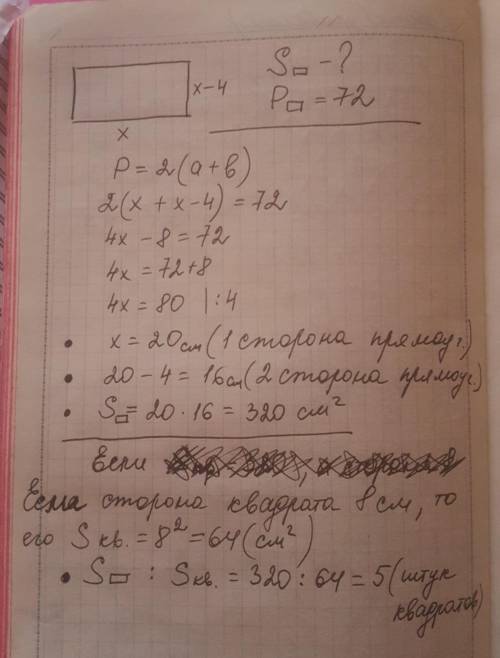 S▭ - ?
x-4
P▭ = 72
x
P = 2(a+b)
2(x + x-4) = 72
4x - 8 = 72
4x = 72+8
4x = 80 |:4
• x = 20см (1 сторона прямоуг.)
• 20 - 4 = 16см (2 сторона прямоуг.)
• S▭ = 20 · 16 = 320 см²
Если
Если сторона квадрата 8 см, то
его S кв. = 8² = 64 (см²)
• S▭ : S кв. = 320 : 64 = 5 (штук
квадратов)